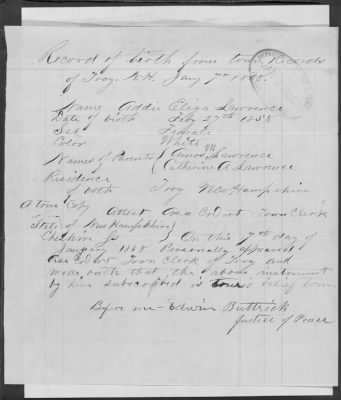 Record of birth from town Records
of Troy, N.H. Jany 7th 1868.
Name Addie Eliza Lawrence
Date of birth Feby 27th 1858
Sex Female
Color White
Names of Parents { Amos Lawrence
Catherine A Lawrence
Residence
of both Troy New Hampshire
A true Copy
Attest Asa C Dort Town Clerk
State of New Hampshire }
Cheshire SS } On this 7th day of
January 1868 Personally appeared
Asa C Dort Town Clerk of Troy and
made oath that the above instrument
by him subscribed is true
Before me Edwin Buttrick
Justice of Peace